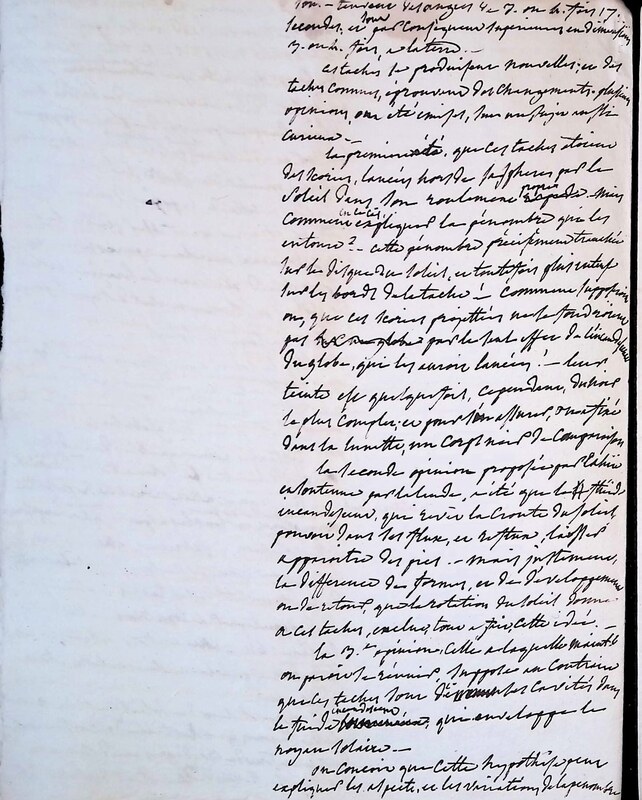 secondes, et sont par conséquent supérieures en dimensions
3. ou 4. fois, a la terre. –
ces taches se produisent nouvelles; et des
taches connues, éprouvent des changements. plusieurs
opinions, ont été émises, sur un sujet aussi
curieux. –
la premiere été, que ces taches etoient
des scories, lancées hors de sa sphere par le
Soleil dans son roulement propre – mais
comment en ce cas expliquer la pénombre qui les
entoure? – cette pénombre précisement tranchée
sur le disque du soleil, et toutefois plus
sur les bords de la tache! – comment suppose t
on, que ces scories projettées ne se fondroient
pas par le seul effet de l'incandescence
du globe, qui les auroit lancées! – leur
teinte est quelquefois, cependant, du noir
le plus complet; et pour s'en assurer, on a fixé
dans la lunette, un corps noir de comparaison
la seconde opinion proposée par Lahire
et soutenue par lalande, a été que le fluide
incandescent, qui revêt la croute du soleil
pouvoit dans ses flux, et reflux, laisser
apparoitre des pics. – mais justement,
la difference des formes, et des développements
ou de retour, que la rotation du soleil donne
a ces taches, exclut, tout a fait, cette idée. –
la 3.e opinion, celle a laquelle maint.t
on paroit se réunir, suppose au contraire
que ces taches sont des cavités dans
le fluide incandescent, qui enveloppe le
noyau solaire. –
on conçoit que cette hypothèse peut
expliquer les aspects, et les variations de la penombre